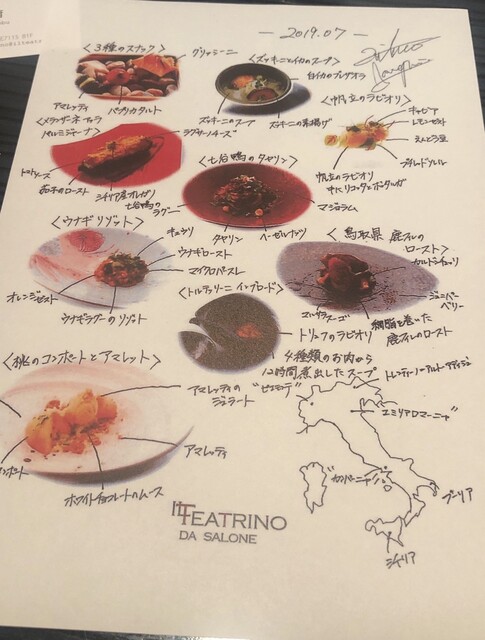 -2019.07-
〈3種のスナック〉
グリッシーニ
アマレッティ
パプリカタルト
〈ズッキーニとイカのスープ〉
白イカのプレザオラ
ズッキーニのスープ
ズッキーニの素揚げ
〈帆立のラビオリ〉
キャビア
レモンゼスト
えんどう豆
ブールドソルベ
帆立のラビオリ
サトリコッタとボッタルガ
〈メランザーネ
パルミジャーナ〉
ラグサーノチーズ
トマトソース
茄子のロースト
シチリア産オレガノ
〈七谷鴨のタヤリン〉
七谷鴨の
ラグー
タヤリン
ヘーゼルナッツ
マジョラム
〈ウナギリゾット〉
キュウリ
ウナギロースト
マイクロハーブ
オレンジゼスト
ウナギラグーのリゾット
〈鳥取県 鹿フィレの
ロースト〉
カルドンチェッリ
ジュニパー
ベリー
マルサラスーゴ
網脂を巻いた
鹿フィレのロースト
〈トルテッリーニ インブロード〉
トリュフのラビオリ
4種類のお肉から
12時間煮出したスープ
〈桃のコンポートとアマレット〉
アマレッティの
ジェラート
アマレッティ
ホワイトチョコレートのムース
"ピエモンテ"
トレンティーノ=アルト・アディジェ
"エミリアロマーニャ"
"カンパーニャ"
プーリア
シチリア
IL TEATRINO
DA SALONE